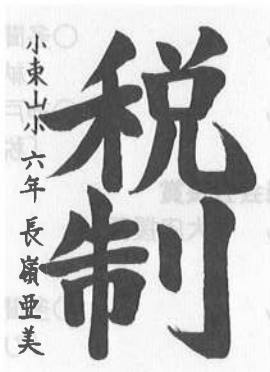 税制
小東山小 六年 長嶺亜美